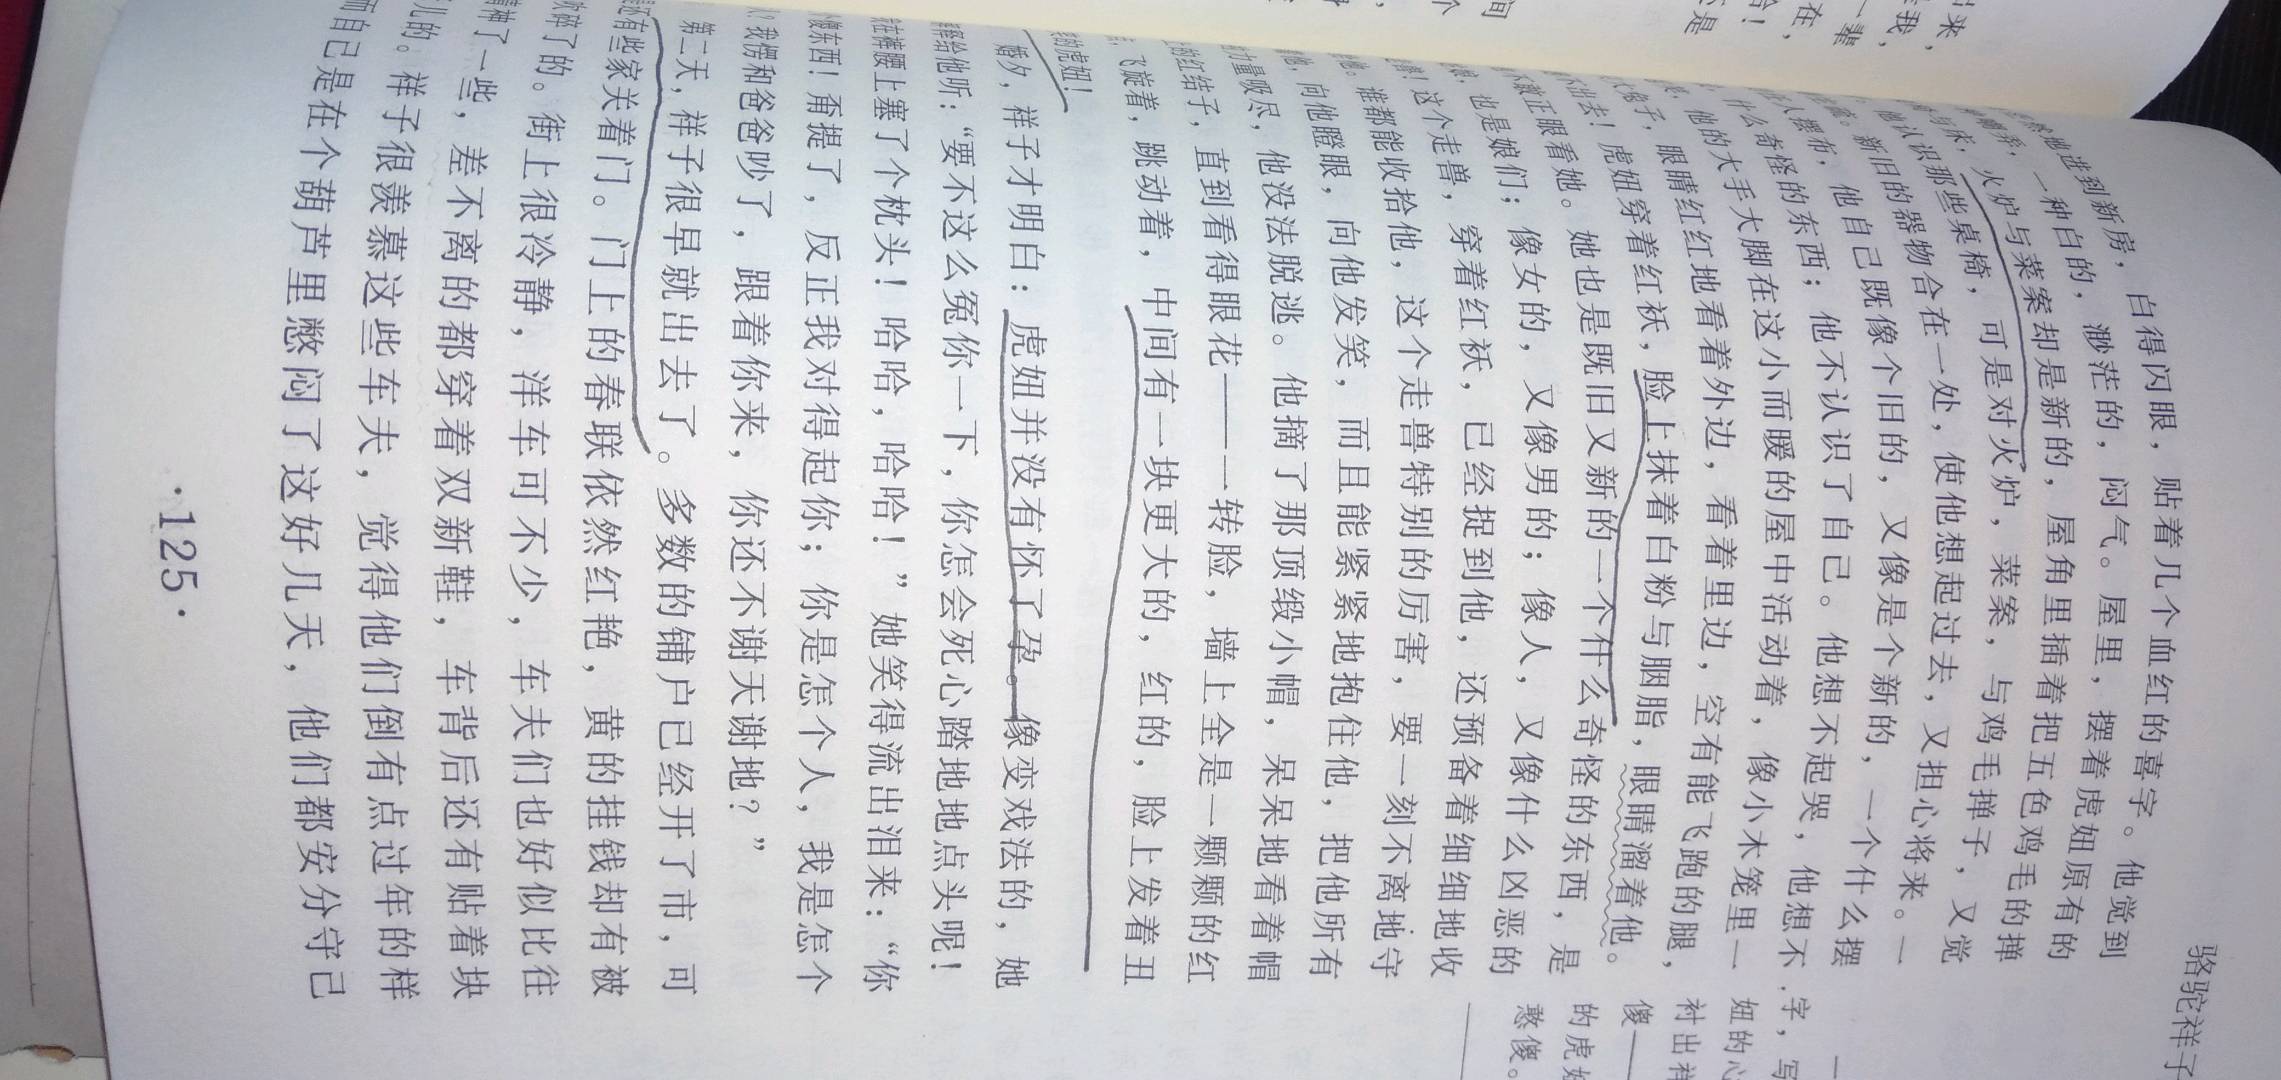 骆驼祥子
进到新房，白得闪眼，贴着几个血红的喜字。他觉到
一种白的，渺茫的，闷气。屋里，摆着虎妞原有的
火炉与菜案却是新的，屋角里插着把五色鸡毛的掸
他认识那些桌椅，可是对火炉，菜案，与鸡毛掸子，又觉
新旧的器物合在一处，使他想起过去，又担心将来。一
人摆布，他自己既像个旧的，又像是个新的，一个什么摆
什么奇怪的东西；他不认识了自己。他想不起哭，他想不
他的大手大脚在这小而暖的屋中活动着，像小木笼里一
兔子，眼睛红红地看着外边，看着里边，空有能飞跑的腿，
不出去！虎妞穿着红袄，脸上抹着白粉与胭脂，眼睛溜着他。
正眼看她。她也是既旧又新的一个什么奇怪的东西，是
也是娘们；像女的，又像男的；像人，又像什么凶恶的
这个走兽，穿着红袄，已经捉到他，还预备着细细地收
谁都能收拾他，这个走兽特别的厉害，要一刻不离地守
向他瞪眼，向他发笑，而且能紧紧地抱住他，把他所有
力量吸尽，他没法脱逃。他摘了那顶缎小帽，呆呆地看着帽
的红结子，直到看得眼花——一转脸，墙上全是一颗颗的红
飞旋着，跳动着，中间有一块更大的，红的，脸上发着丑
的虎妞！
婚夕，祥子才明白：虎妞并没有怀了孕。像变戏法的，她
释给他听：“要不这么冤你一下，你怎会死心踏地地点头呢！
在裤腰上塞了个枕头！哈哈，哈哈！”她笑得流出泪来：“你
东西！甭提了，反正我对得起你；你是怎个人，我是怎个
？我愣和爸爸吵了，跟着你来，你还不谢天谢地？”
第二天，祥子很早就出去了。多数的铺户已经开了市，可
还有些家关着门。门上的春联依然红艳，黄的挂钱却有被
吹碎了的。街上很冷静，洋车可不少，车夫们也好似比往
精神了一些，差不离的都穿着双新鞋，车背后还有贴着块
儿的。祥子很羡慕这些车夫，觉得他们倒有点过年的样
而自己是在个葫芦里憋闷了这好几天，他们都安分守己
·125·
字，写
妞的心
衬出祥
傻——
的虎妞
憨傻。